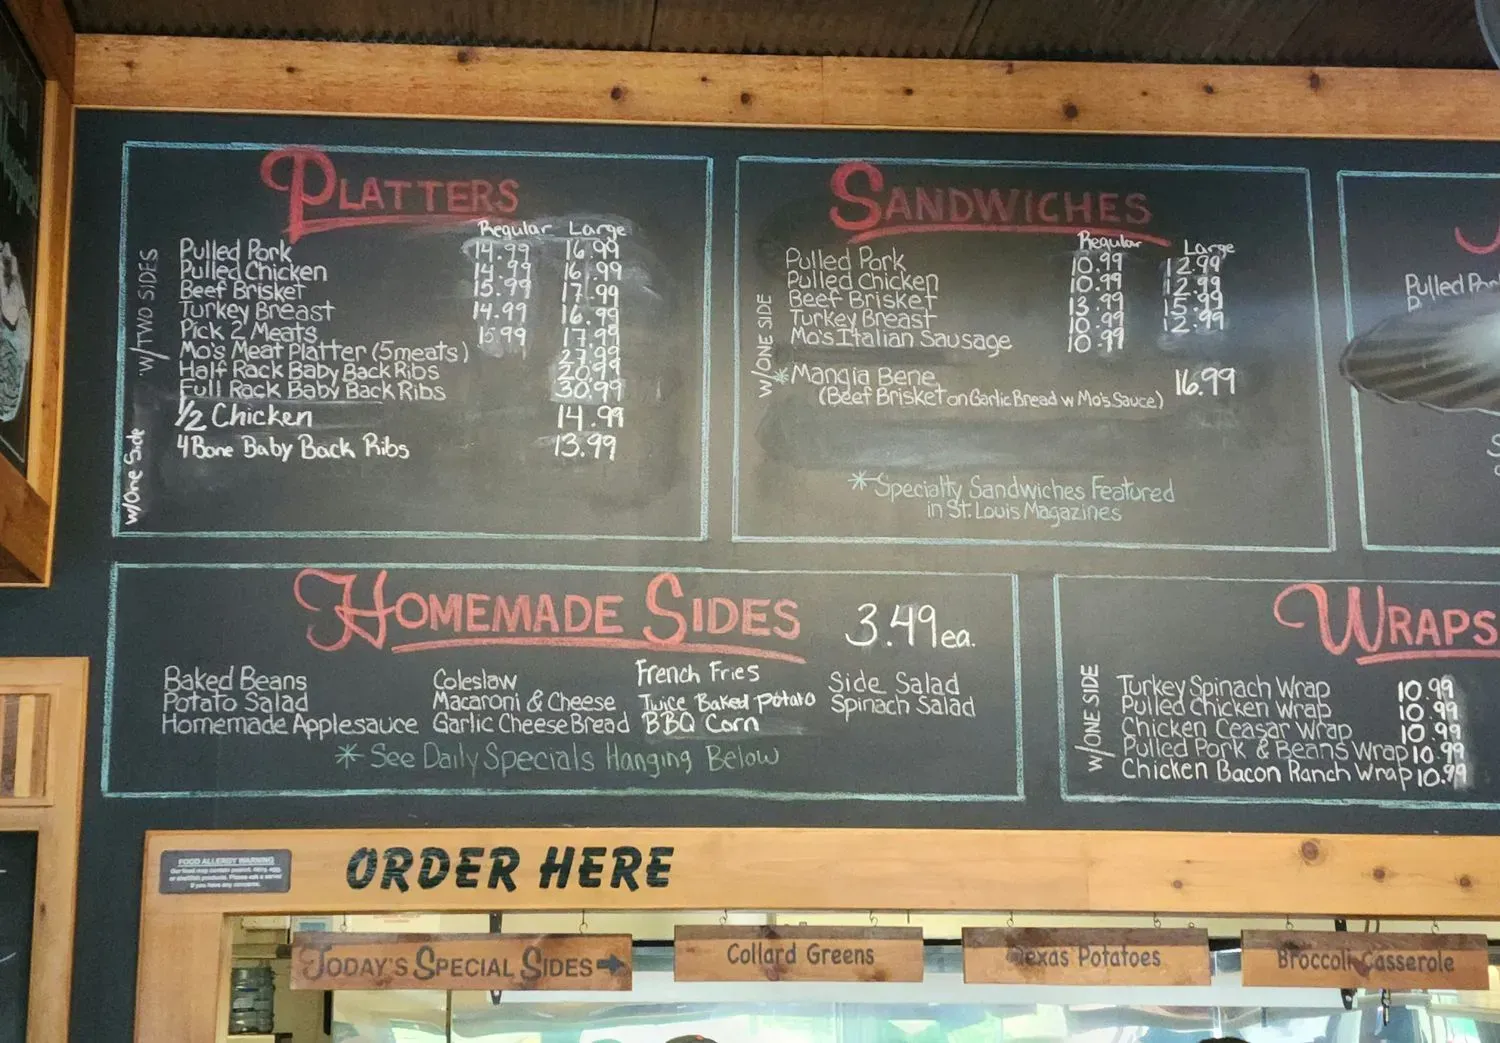 PLATTERS
Regular Large
W/TWO SIDES
Pulled Pork 14.99 16.99
Pulled Chicken 14.99 16.99
Beef Brisket 15.99 17.99
Turkey Breast 14.99 16.99
Pick 2 Meats 15.99 17.99
Mo's Meat Platter (5meats) 27.99
Half Rack Baby Back Ribs 20.99
Full Rack Baby Back Ribs 30.99
W/One Side
1/2 Chicken 14.99
4 Bone Baby Back Ribs 13.99
SANDWICHES
Regular Large
W/ONE SIDE
Pulled Pork 10.99 12.99
Pulled Chicken 10.99 12.99
Beef Brisket 13.99 15.99
Turkey Breast 10.99 12.99
Mo's Italian Sausage 10.99
*Mangia Bene 16.99
(Beef Brisket on Garlic Bread w Mo's Sauce)
* Specialty Sandwiches Featured
in St. Louis Magazines
Pulled
HOMEMADE SIDES 3.49 ea.
Baked Beans Coleslaw French Fries Side Salad
Potato Salad Macaroni & Cheese Twice Baked Potato Spinach Salad
Homemade Applesauce Garlic Cheese Bread BBQ Corn
* See Daily Specials Hanging Below
WRAPS
W/ONE SIDE
Turkey Spinach Wrap 10.99
Pulled Chicken Wrap 10.99
Chicken Ceasar Wrap 10.99
Pulled Pork & Beans Wrap 10.99
Chicken Bacon Ranch Wrap 10.99
FOOD ALLERGY WARNING
Our food may contain peanut, dairy, egg,
or shellfish products. Please ask a server
if you have any concerns.
ORDER HERE
TODAY'S SPECIAL SIDES
Collard Greens
Texas Potatoes
Broccoli Casserole